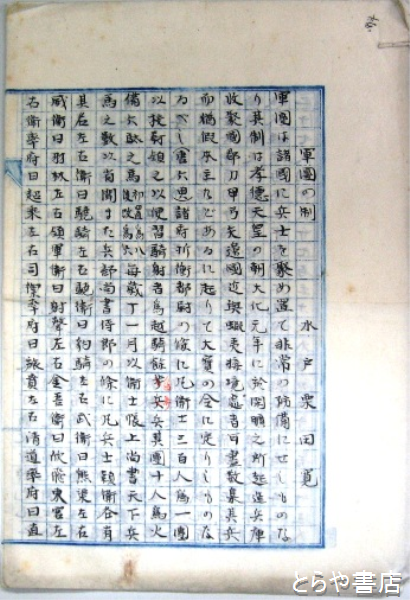 軍團の制
水戸 栗田寛
軍團は諸國に兵士を聚め置て非常の防備にせしものな
り其制は孝德天皇の朝大化元年に於閑曠之所起造兵庫
收聚國郡刀甲弓矢邊國近與蝦夷接境處者可盡數集其兵
而猶假授本主などあるに起りて大寶の令に定りしものな
るべし唐六典諸府折衝都尉の條に凡衛士三百人為一團
以校尉領之以便習騎射者為越騎餘為步兵其團十人為火
備六馱之馬 初置為八後改為六 每歲十一月以衛士帳上尚書天下兵
馬之數以省聞また兵部尚書侍郎の條に凡兵士隸衛各有
其名左右衛曰驍騎左右驍衛曰豹騎左右武衛曰熊渠左右
威衛曰羽林左右領軍衛曰射聲左右金吾衛曰佽飛東宮左
右衛率府曰超乘左右司禦率府曰旅賁左右清道率府曰直
とらや書店